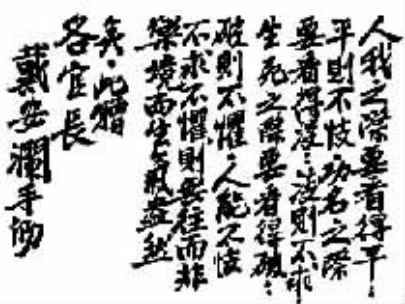 人我之際要看得平:
平則不忮·功名之際
要看得淡:淡則不求
生死之際要看得破:
破則不懼·人能不忮
不求不懼則無往而非
樂境而生氣盎然
矣·此贈
各官長
戴安瀾手仰